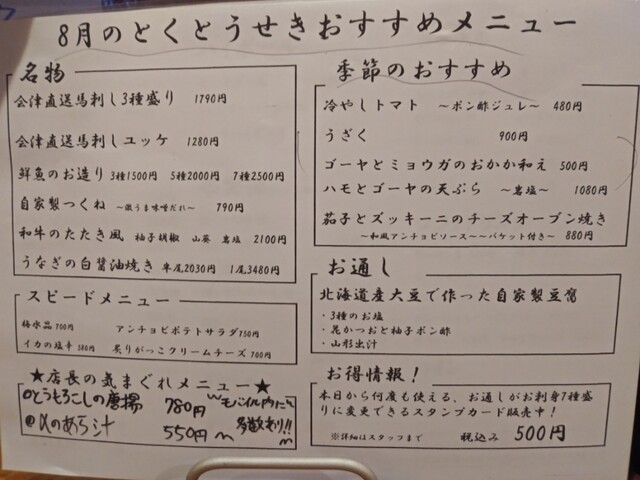 8月のとくとうせきおすすめメニュー
名物
会津直送馬刺し3種盛り 1790円
会津直送馬刺しユッケ 1280円
鮮魚のお造り 3種1500円 5種2000円 7種2500円
自家製つくね ～激うま味噌だれ～ 790円
和牛のたたき風 柚子胡椒 山葵 岩塩 2100円
うなぎの白醤油焼き 半尾2030円 1尾3480円
スピードメニュー
梅水晶 700円 アンチョビポテトサラダ750円
イカの塩辛 580円 炙りがっこクリームチーズ 700円
★店長の気まぐれメニュー★
◎とうもろこしの唐揚 780円
のあら汁 550円～
～モバイル内に
多数あり!!
季節のおすすめ
冷やしトマト ～ポン酢ジュレ～ 480円
うざく 900円
ゴーヤとミョウガのおかか和え 500円
ハモとゴーヤの天ぷら ～岩塩～ 1080円
茄子とズッキーニのチーズオーブン焼き
～和風アンチョビソース～～バケット付き～ 880円
お通し
北海道産大豆で作った自家製豆腐
・3種のお塩
・花かつおと柚子ポン酢
・山形出汁
お得情報！
本日から何度も使える、お通しがお刺身7種盛
りに変更できるスタンプカード販売中！
※詳細はスタッフまで 税込み 500円